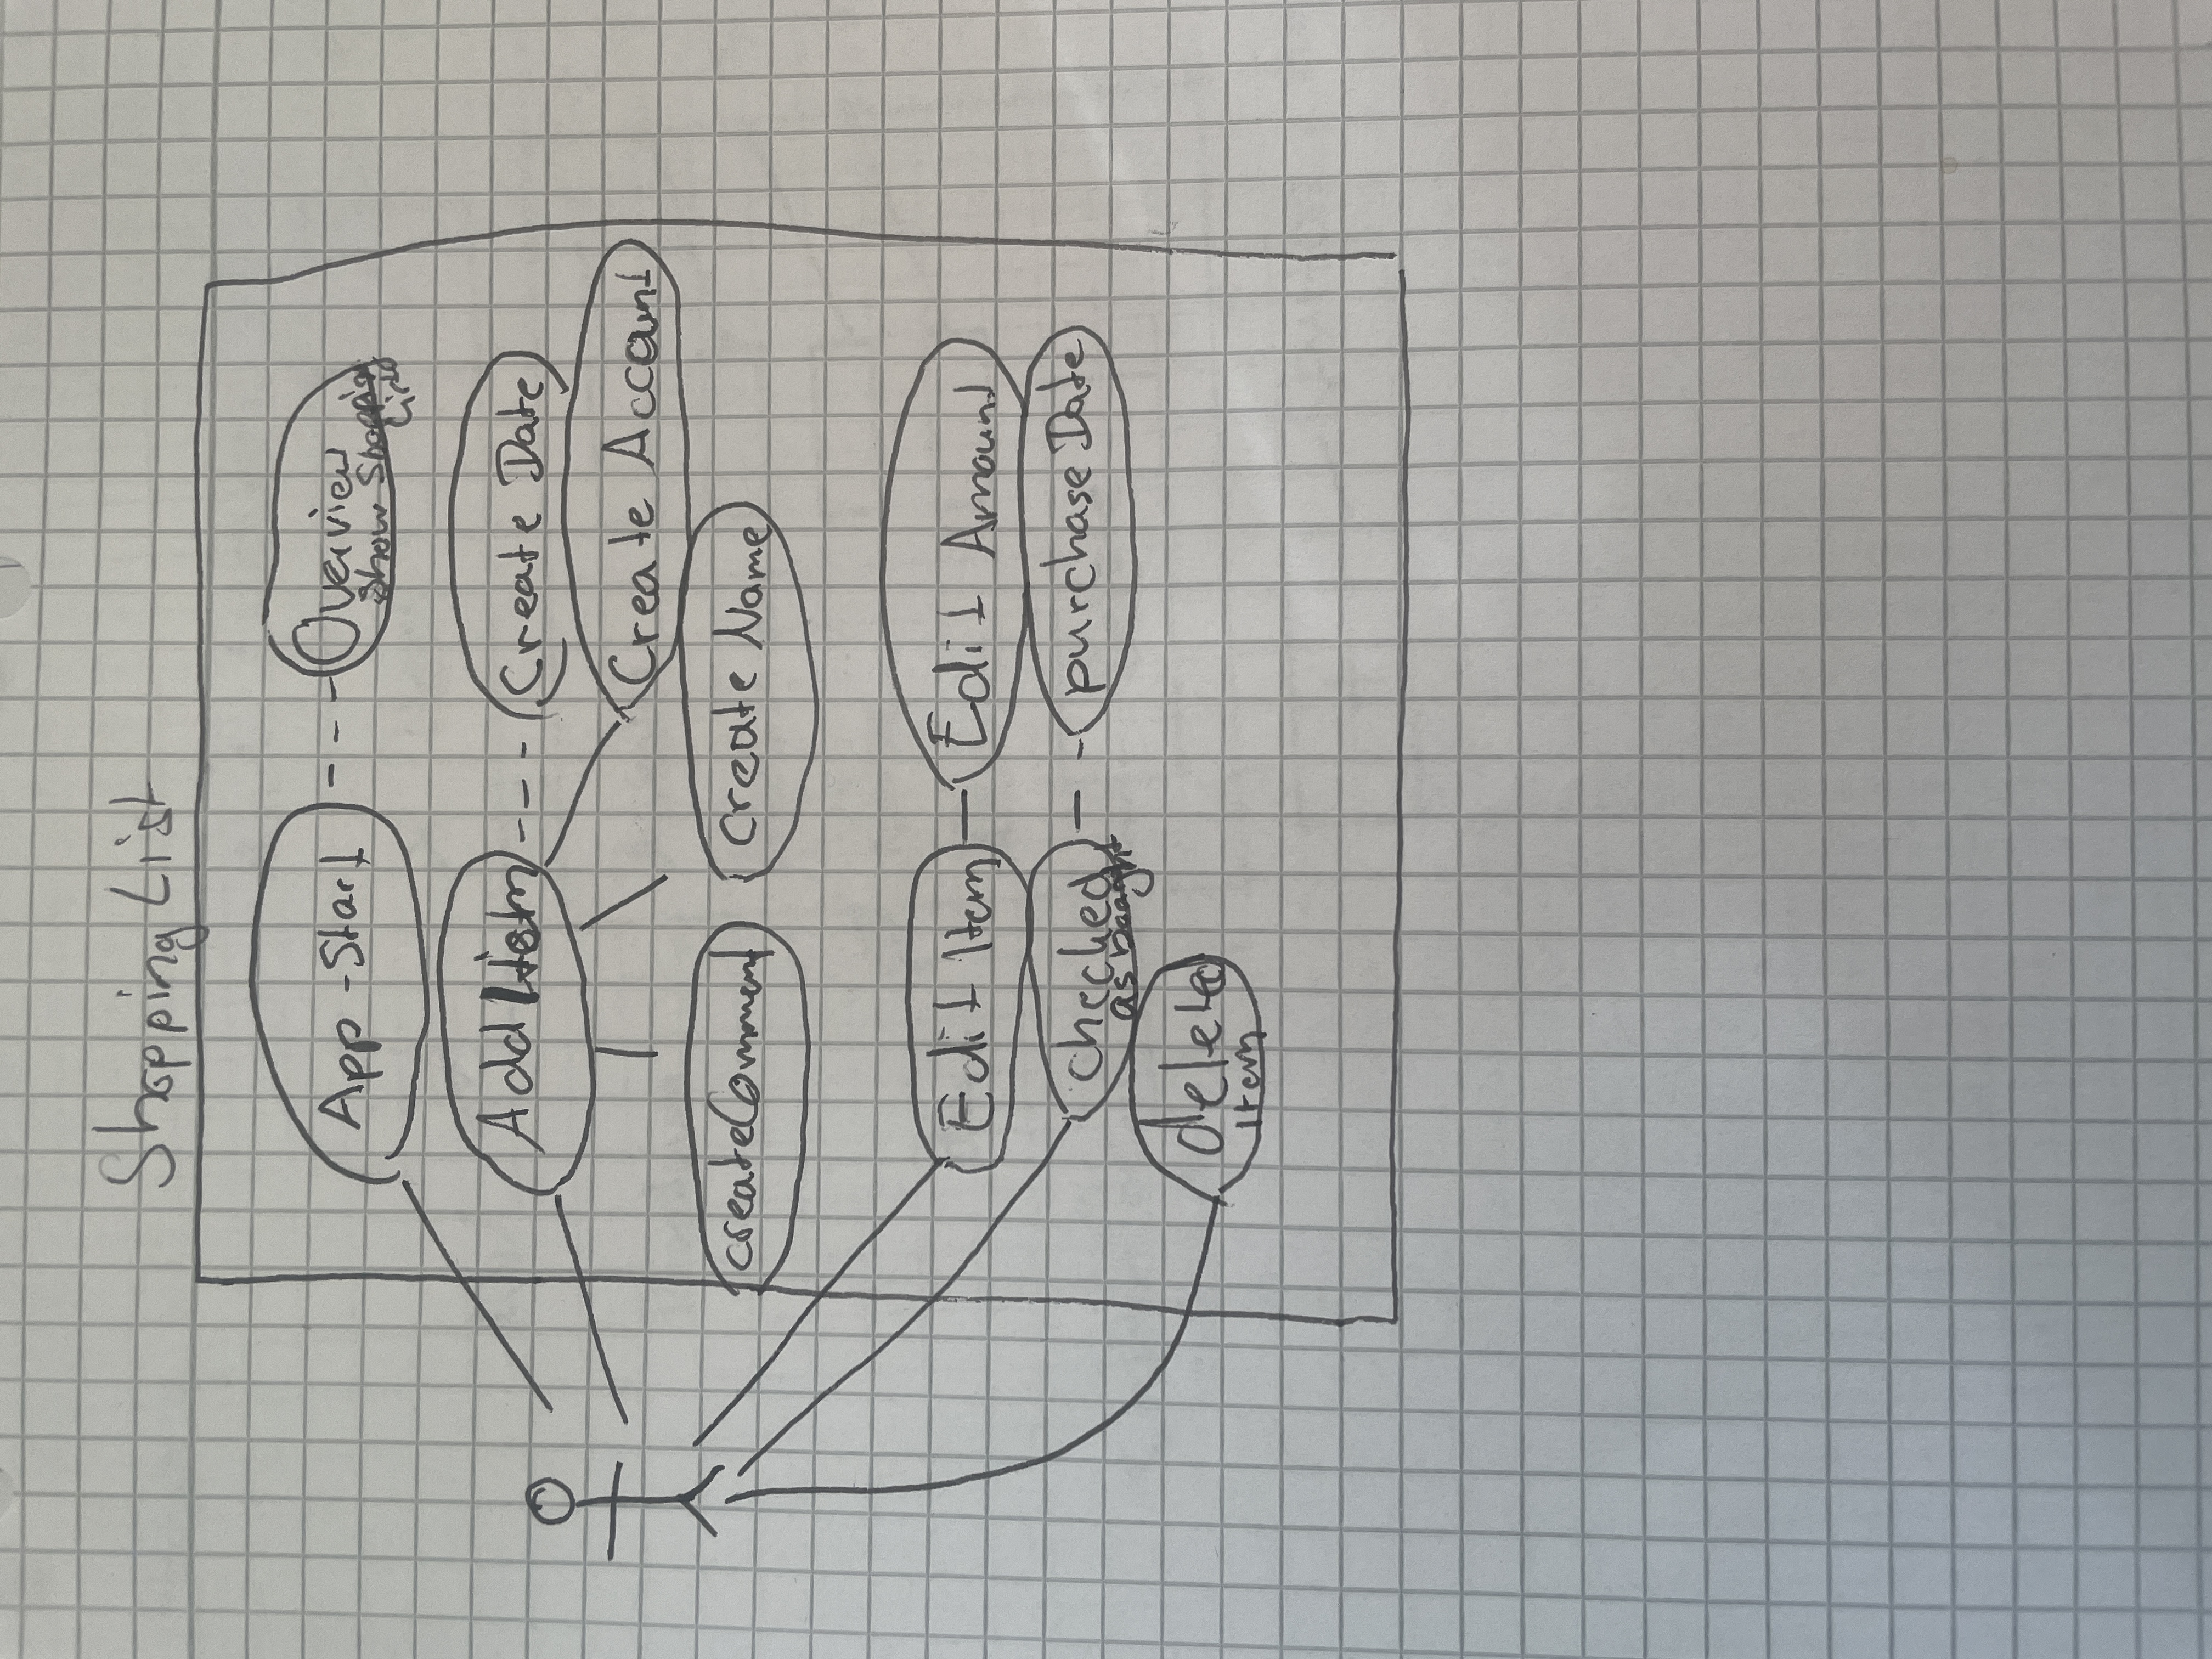 Shopping List
App-Start
Overview
Show Shopping
List
Add Item
Create Date
Create Account
createComment
create Name
Edit Item
Edit Amount
checked
as bought
purchase Date
deleted
Item